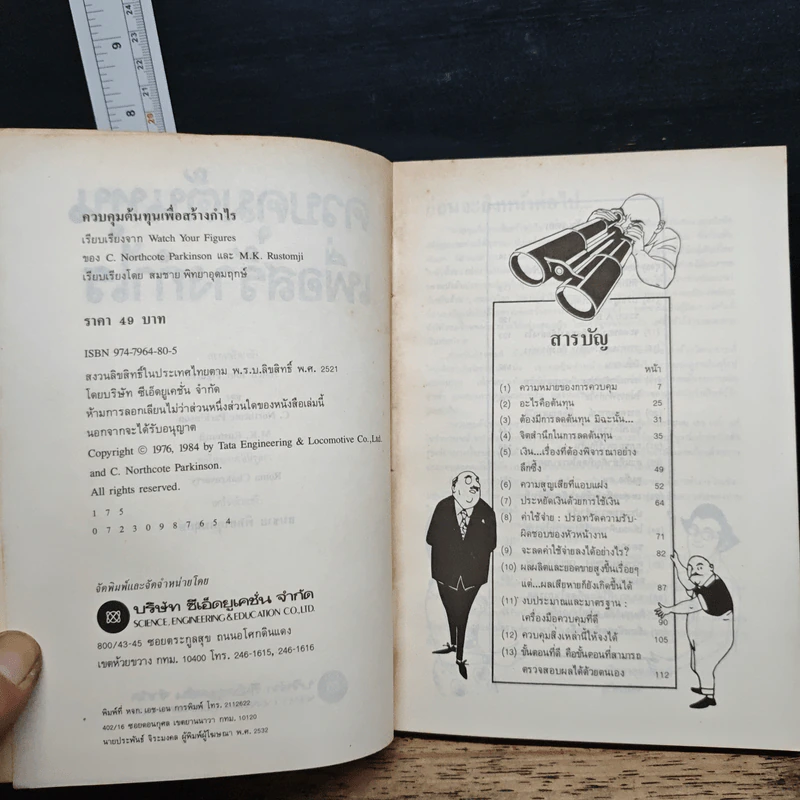 ควบคุมต้นทุนเพื่อสร้างกำไร
เรียบเรียงจาก Watch Your Figures
ของ C. Northcote Parkinson และ M.K. Rustomji
เรียบเรียงโดย สมชาย พิทยาอุดมฤกษ์
ราคา 49 บาท
ISBN 974-7964-80-5
สงวนลิขสิทธิ์ในประเทศไทยตาม พ.ร.บ.ลิขสิทธิ์ พ.ศ. 2521
โดยบริษัท ซีเอ็ดยูเคชั่น จำกัด
ห้ามการลอกเลียนไม่ว่าส่วนหนึ่งส่วนใดของหนังสือเล่มนี้
นอกจากจะได้รับอนุญาต
Copyright © 1976, 1984 by Tata Engineering & Locomotive Co.,Ltd.
and C. Northcote Parkinson.
All rights reserved.
1 7 5
0 7 2 3 0 9 8 7 6 5 4
จัดพิมพ์และจัดจำหน่ายโดย
บริษัท ซีเอ็ดยูเคชั่น จำกัด
SCIENCE, ENGINEERING & EDUCATION CO.,LTD.
800/43-45 ซอยตระกูลสุข ถนนอโศกดินแดง
เขตห้วยขวาง กทม. 10400 โทร. 246-1615, 246-1616
พิมพ์ที่ หจก. เอช-เอน การพิมพ์ โทร. 2112622
402/16 ซอยดอนกุศล เขตยานนาวา กทม. 10120
นายประพันธ์ จิระมงคล ผู้พิมพ์ผู้โฆษณา พ.ศ. 2532
สารบัญ
หน้า
(1) ความหมายของการควบคุม 7
(2) อะไรคือต้นทุน 25
(3) ต้องมีการลดต้นทุน มิฉะนั้น... 31
(4) จิตสำนึกในการลดต้นทุน 35
(5) เงิน...เรื่องที่ต้องพิจารณาอย่าง
ลึกซึ้ง 49
(6) ความสูญเสียที่แอบแฝง 52
(7) ประหยัดเงินด้วยการใช้เงิน 64
(8) ค่าใช้จ่าย : ปรอทวัดความรับ-
ผิดชอบของหัวหน้างาน 71
(9) จะลดค่าใช้จ่ายลงได้อย่างไร? 82
(10) ผลผลิตและยอดขายสูงขึ้นเรื่อยๆ
แต่...ผลเสียหายก็ยังเกิดขึ้นได้ 87
(11) งบประมาณและมาตรฐาน :
เครื่องมือควบคุมที่ดี 90
(12) ควบคุมสิ่งเหล่านี้ให้จงได้ 105
(13) ขั้นตอนที่ดี คือขั้นตอนที่สามารถ
ตรวจสอบผลได้ด้วยตนเอง 112